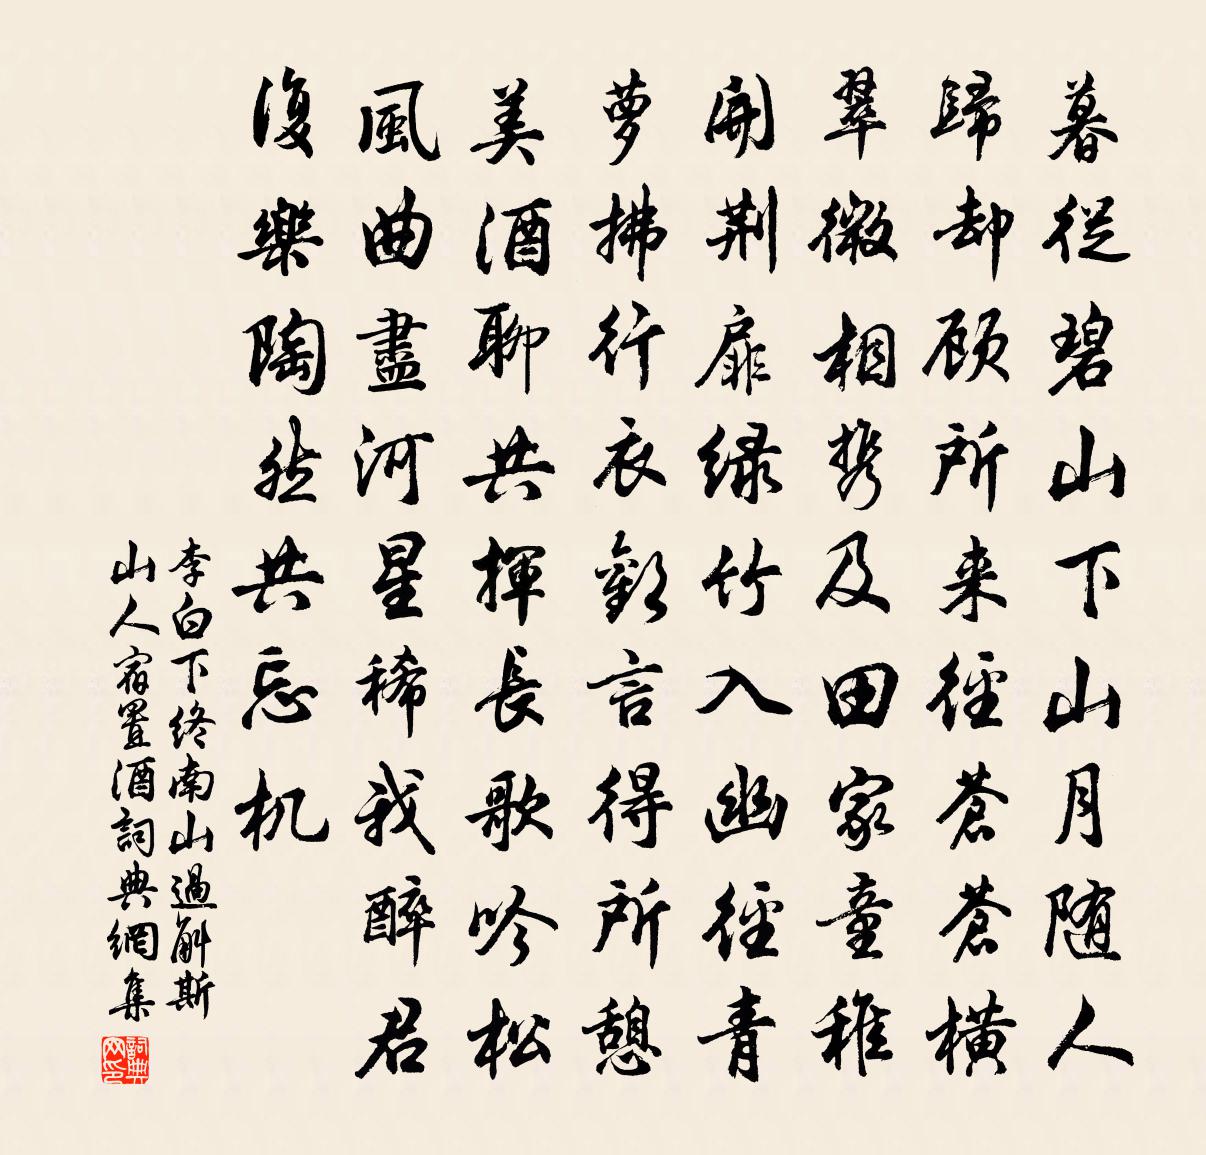 暮從碧山下山月随人
歸却顾所来徑蒼蒼横
翠微相携及田家童稚
開荆扉绿竹入幽徑青
萝拂行衣歡言得所憩
美酒聊共揮長歌吟松
風曲盡河星稀我醉君
復樂陶然共忘机
李白下终南山過斛斯
山人宿置酒詞典網集
詞典网印